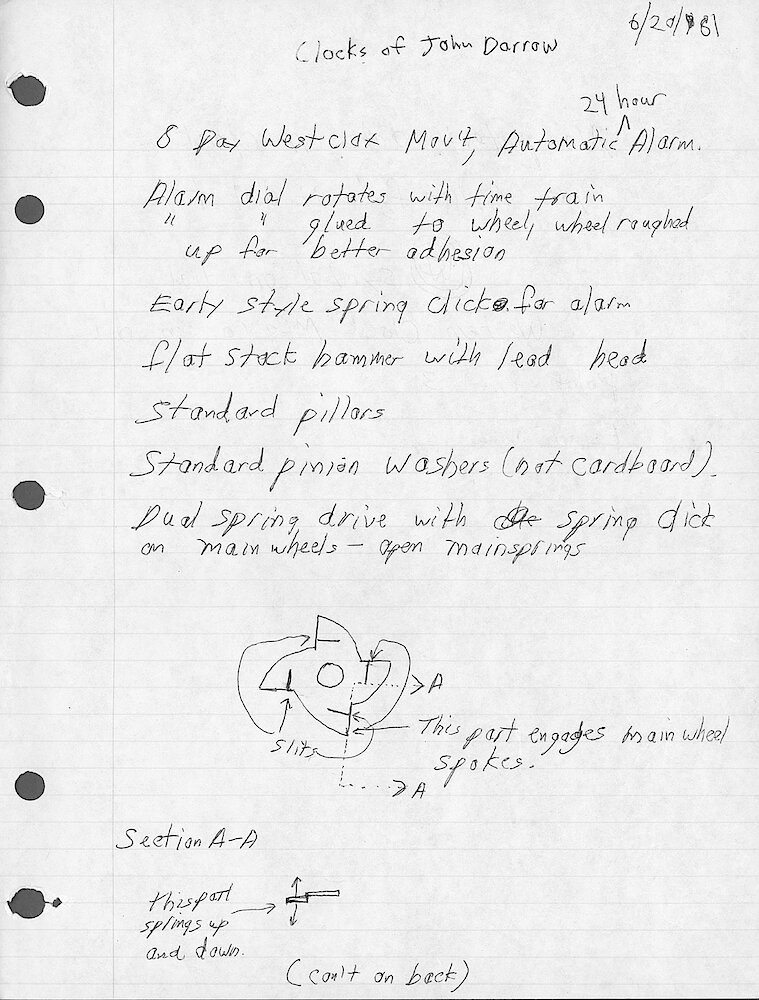 6/20/81
Clocks of John Darrow
24 hour
8 Day Westclox Mov't, Automatic ^ Alarm.
Alarm dial rotates with time train
" " glued to wheel, wheel roughed
up for better adhesion
Early style spring click for alarm
flat stock hammer with lead head
Standard pillars
Standard pinion washers (not cardboard).
Dual spring drive with spring click
on main wheels – open mainsprings
A
slits
This part engages main wheel
spokes.
A
Section A-A
this part
springs up
and down.
(con't on back)